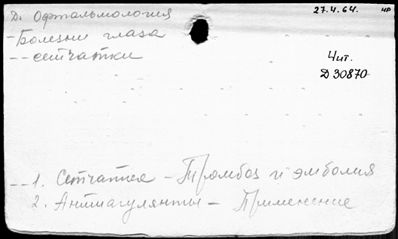 Д. Офтальмология
27.4.64. нр
- Болезни глаза
-- сетчатки
Чит.
Д 30870
-- 1. Сетчатка - Тромбоз и эмболия
2. Антикагулянты - Применение